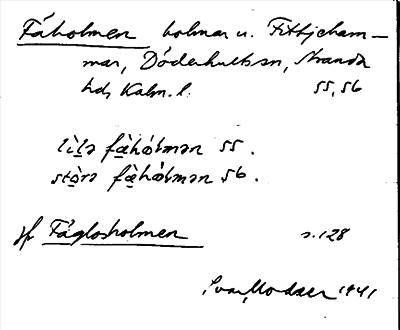 Fåholmen holmar u. Fittjeham-
mar, Döderhultssn, Stranda
hd, Kalm. l. 55, 56
lìlə fæ̀hólmən 55.
stòrə fæ̀hólmən 56.
jfr Fåglosholmen s. 128
Ivar Modéer 1941